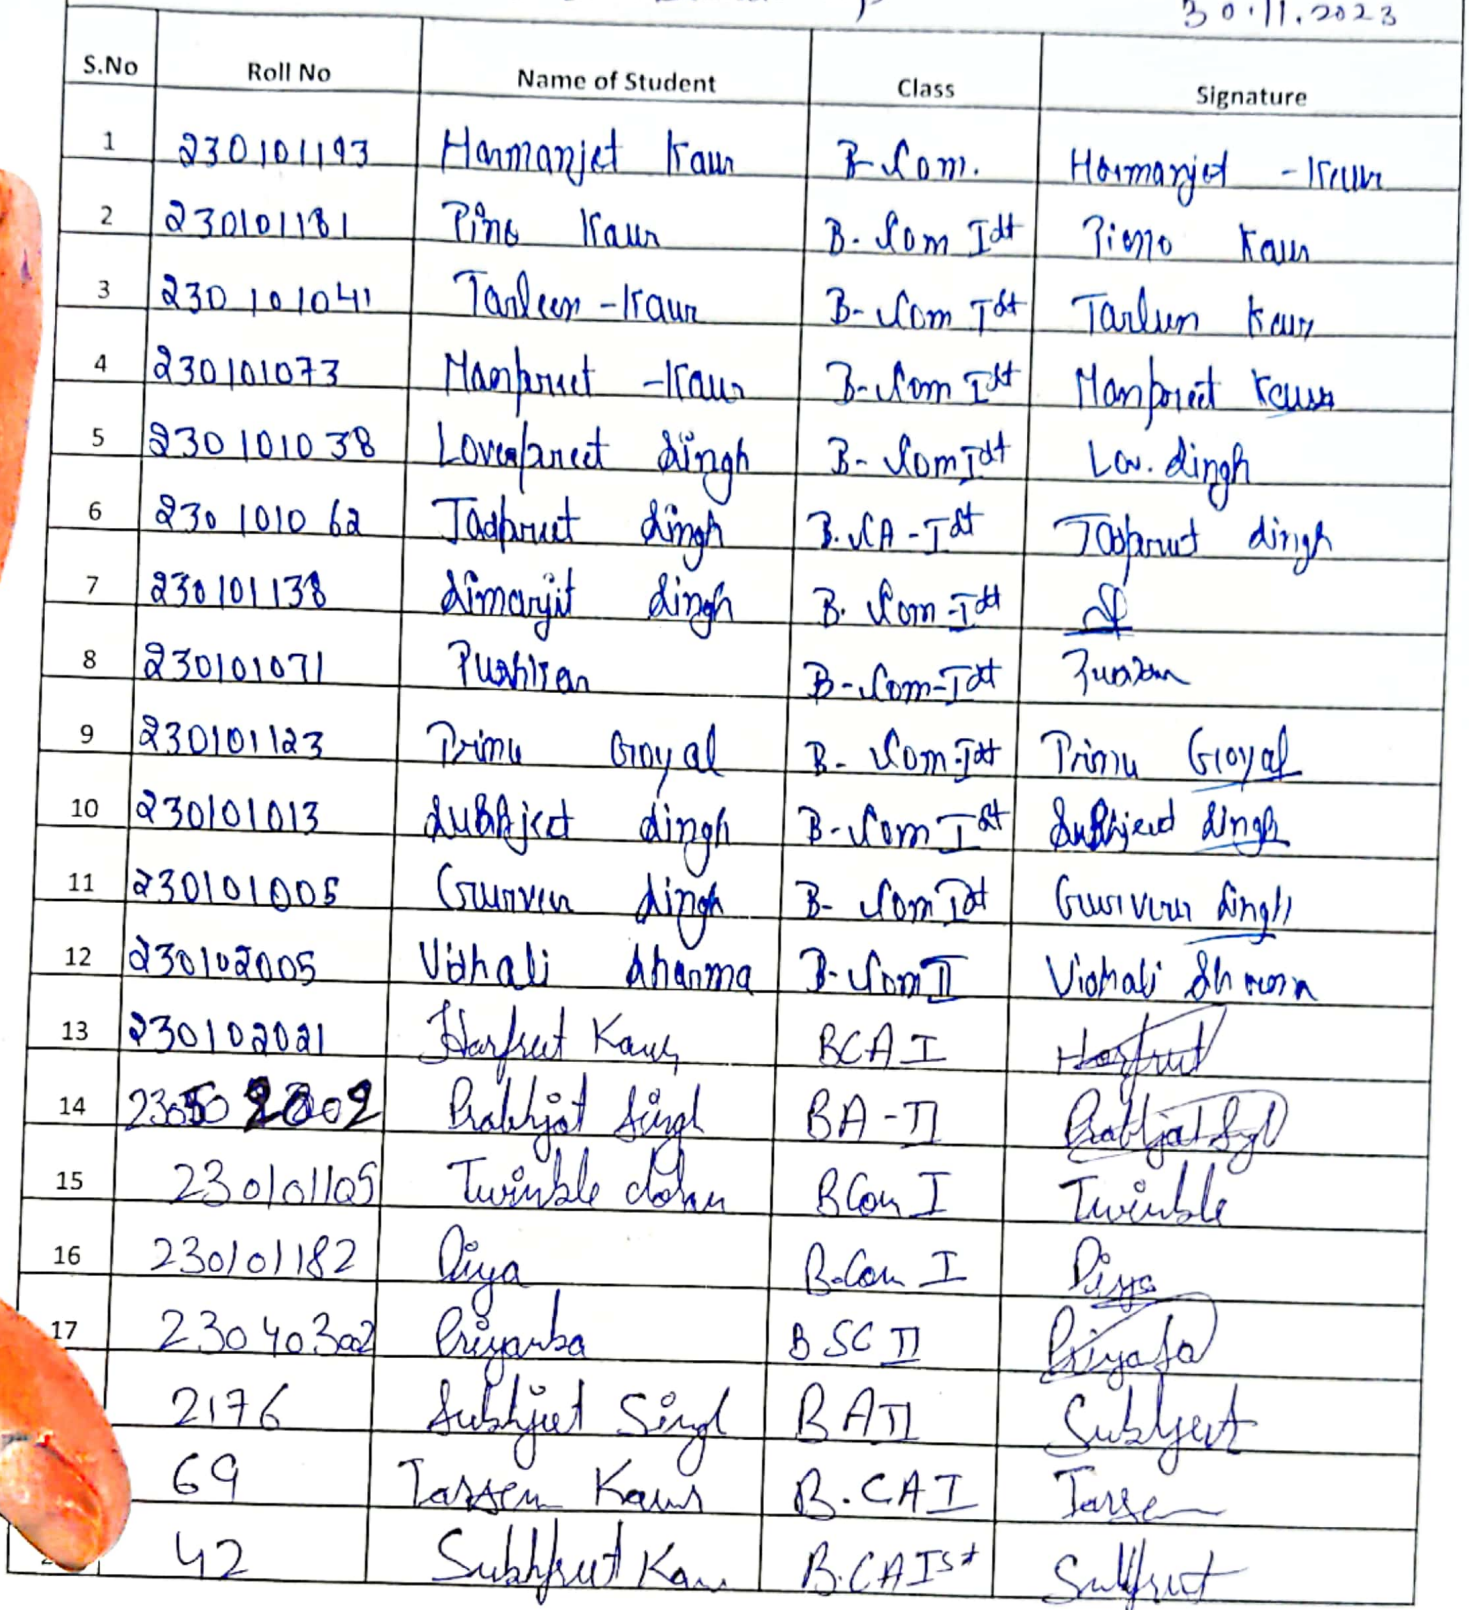 30.11.2023
S.No Roll No Name of Student Class Signature
1 230101193 Harmanjet Kaur B-Com. Harmanjet -Kaur
2 230101181 Kaur B. Com Ist Kaur
3 230101041 Tarleen -Kaur B-Com Ist Tarleen Kaur
4 230101073 Manpreet -Kaur B-Com Ist Manpreet Kaur
5 230101038 Lovepreet Singh B-Com Ist Lov. Singh
6 230101062 Jaspreet Singh B.CA-Ist Jaspreet Singh
7 230101138 Simarjit Singh B. Com-Ist
8 230101071 Pushkar B-Com-Ist
9 230101123 Prince Goyal B- Com-Ist Prince Goyal
10 230101013 Sukhjeet Singh B-Com Ist Sukhjeet Singh
11 230101005 Gurveer Singh B- Com Ist Gurveer Singh
12 230102005 Vishali Sharma B-Com II Vishali
13 230102021 Harpreet Kaur BCA I Harpreet
14 Prabhjot Singh BA-II Prabhjot
15 230101105 Twinkle BCom I Twinkle
16 230101182 Diya B.Com I Diya
17 230403002 Priyanka BSC II
2176 Sukhjeet Singh BA II Sukhjeet
69 Tarsem Kaur B.CA I Tarsem
42 Sukhpreet Kaur B.CA Ist Sukhpreet